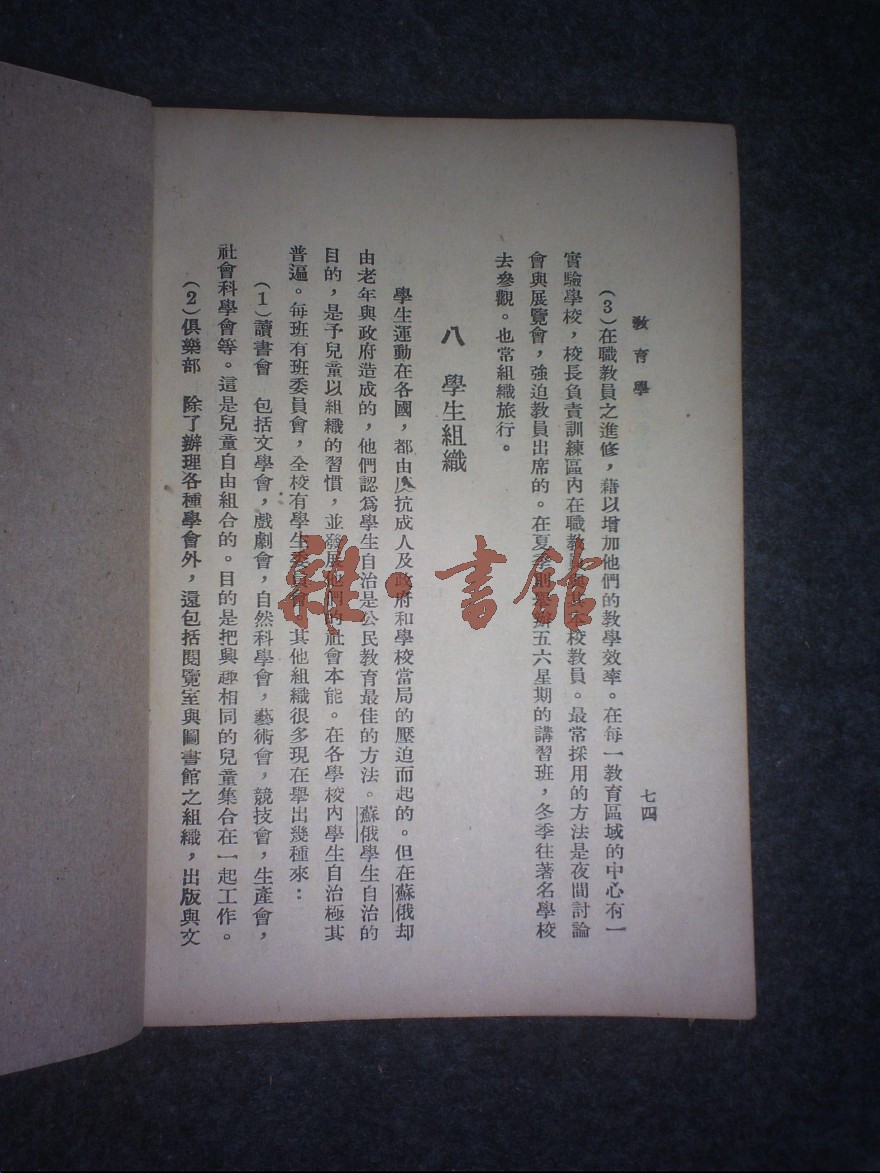 教育學
七四
(3)在職教員之進修，藉以增加他們的教學效率。在每一教育區域的中心有一
實驗學校，校長負責訓練區內在職教員與其本校教員。最常採用的方法是夜間討論
會與展覽會，強迫教員出席的。在夏季則舉辦五六星期的講習班，冬季往著名學校
去參觀。也常組織旅行。
八 學生組織
學生運動在各國，都由反抗成人及政府和學校當局的壓迫而起的。但在蘇俄却
由老年與政府造成的，他們認爲學生自治是公民教育最佳的方法。蘇俄學生自治的
目的，是予兒童以組織的習慣，並發展他們的社會本能。在各學校內學生自治極其
普遍。每班有班委員會，全校有學生委員會。其他組織很多現在舉出幾種來：
(1)讀書會 包括文學會，戲劇會，自然科學會，藝術會，競技會，生產會，
社會科學會等。這是兒童自由組合的。目的是把興趣相同的兒童集合在一起工作。
(2)俱樂部 除了辦理各種學會外，還包括閱覽室與圖書館之組織，出版與文
雜·書館